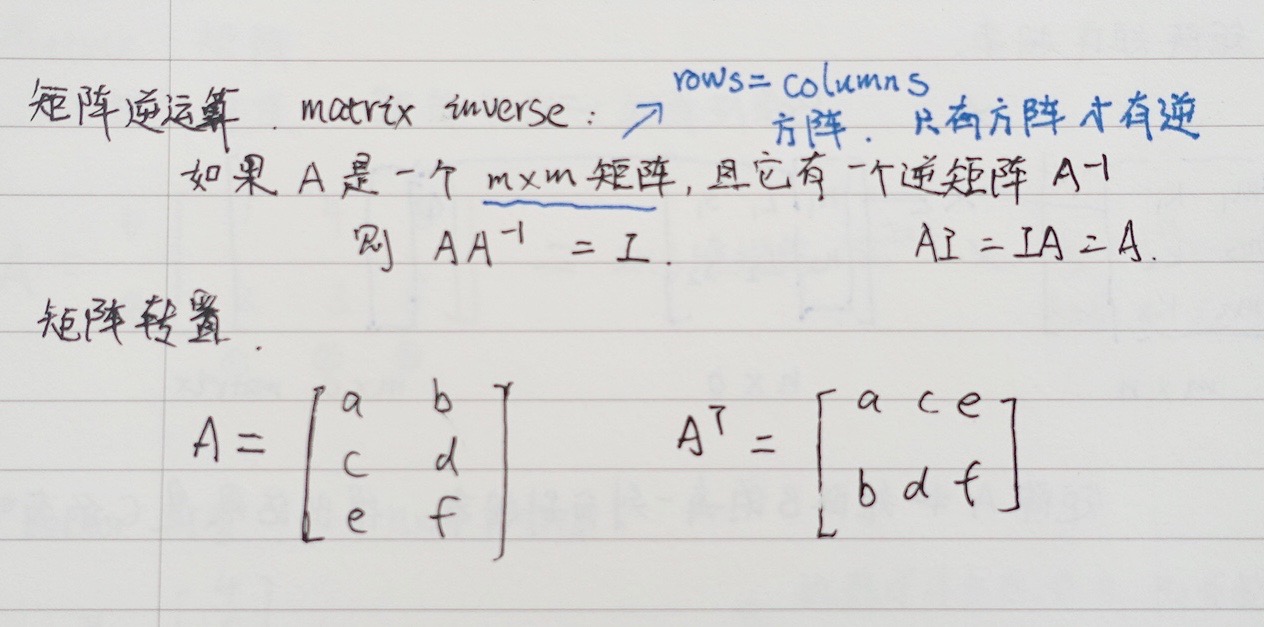 矩阵逆运算. matrix inverse: ↗ rows = columns
方阵. 只有方阵才有逆
如果 A 是一个 m×m 矩阵, 且它有一个逆矩阵 A⁻¹
则 AA⁻¹ = I. AI = IA = A.
矩阵转置.
A = [a b
c d
e f]
Aᵀ = [a c e
b d f]